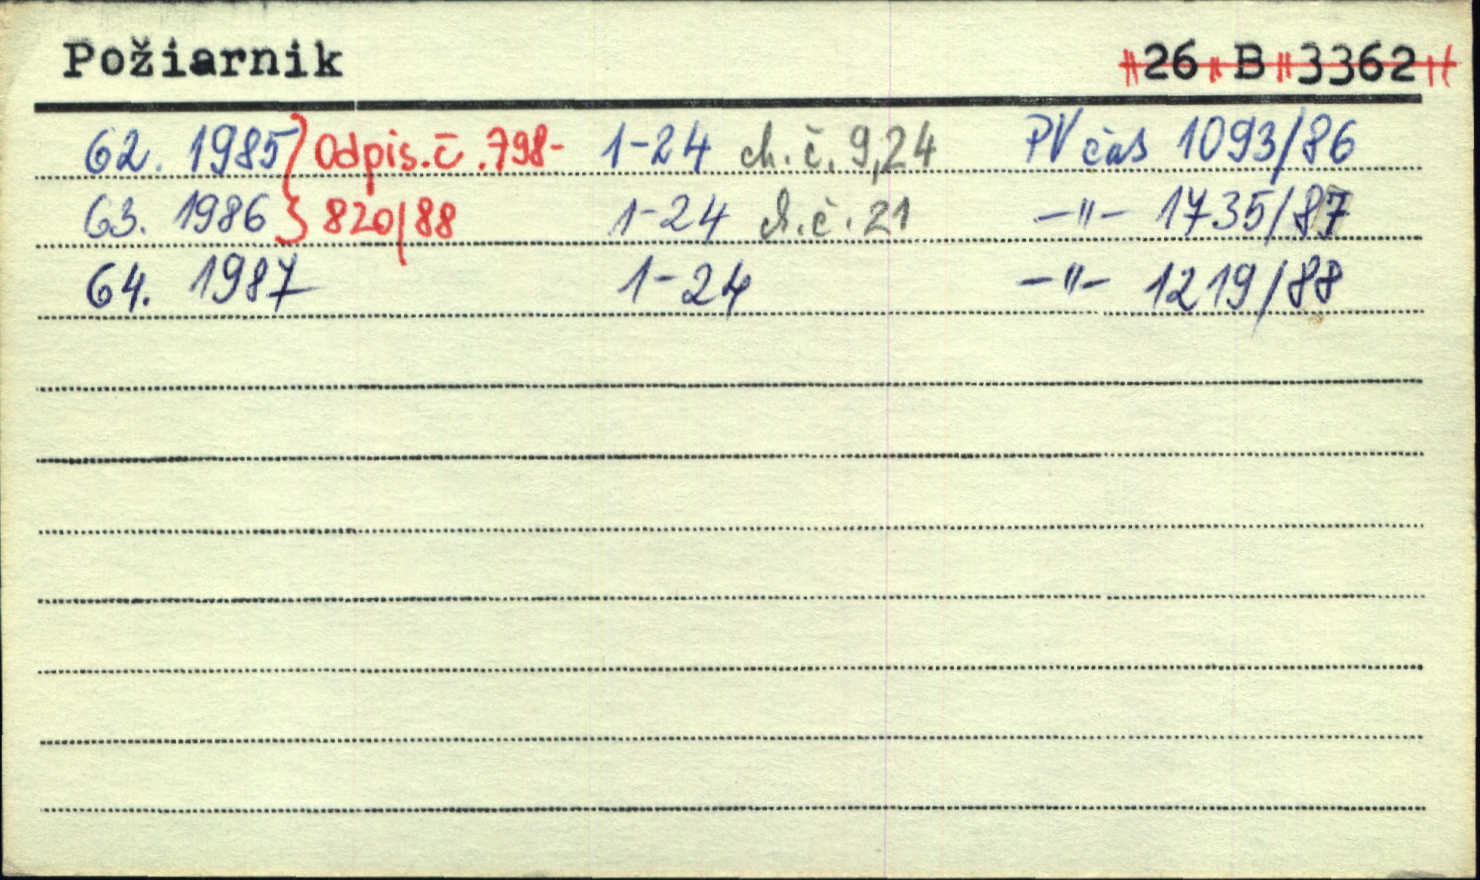 Požiarnik 26 B 3362
62. 1985 } Odpis.č.798- 1-24 ch.č. 9,24 PV čas 1093/86
63. 1986 } 820/88 1-24 ch.č.21 -"- 1735/87
64. 1987 1-24 -"- 1219/88